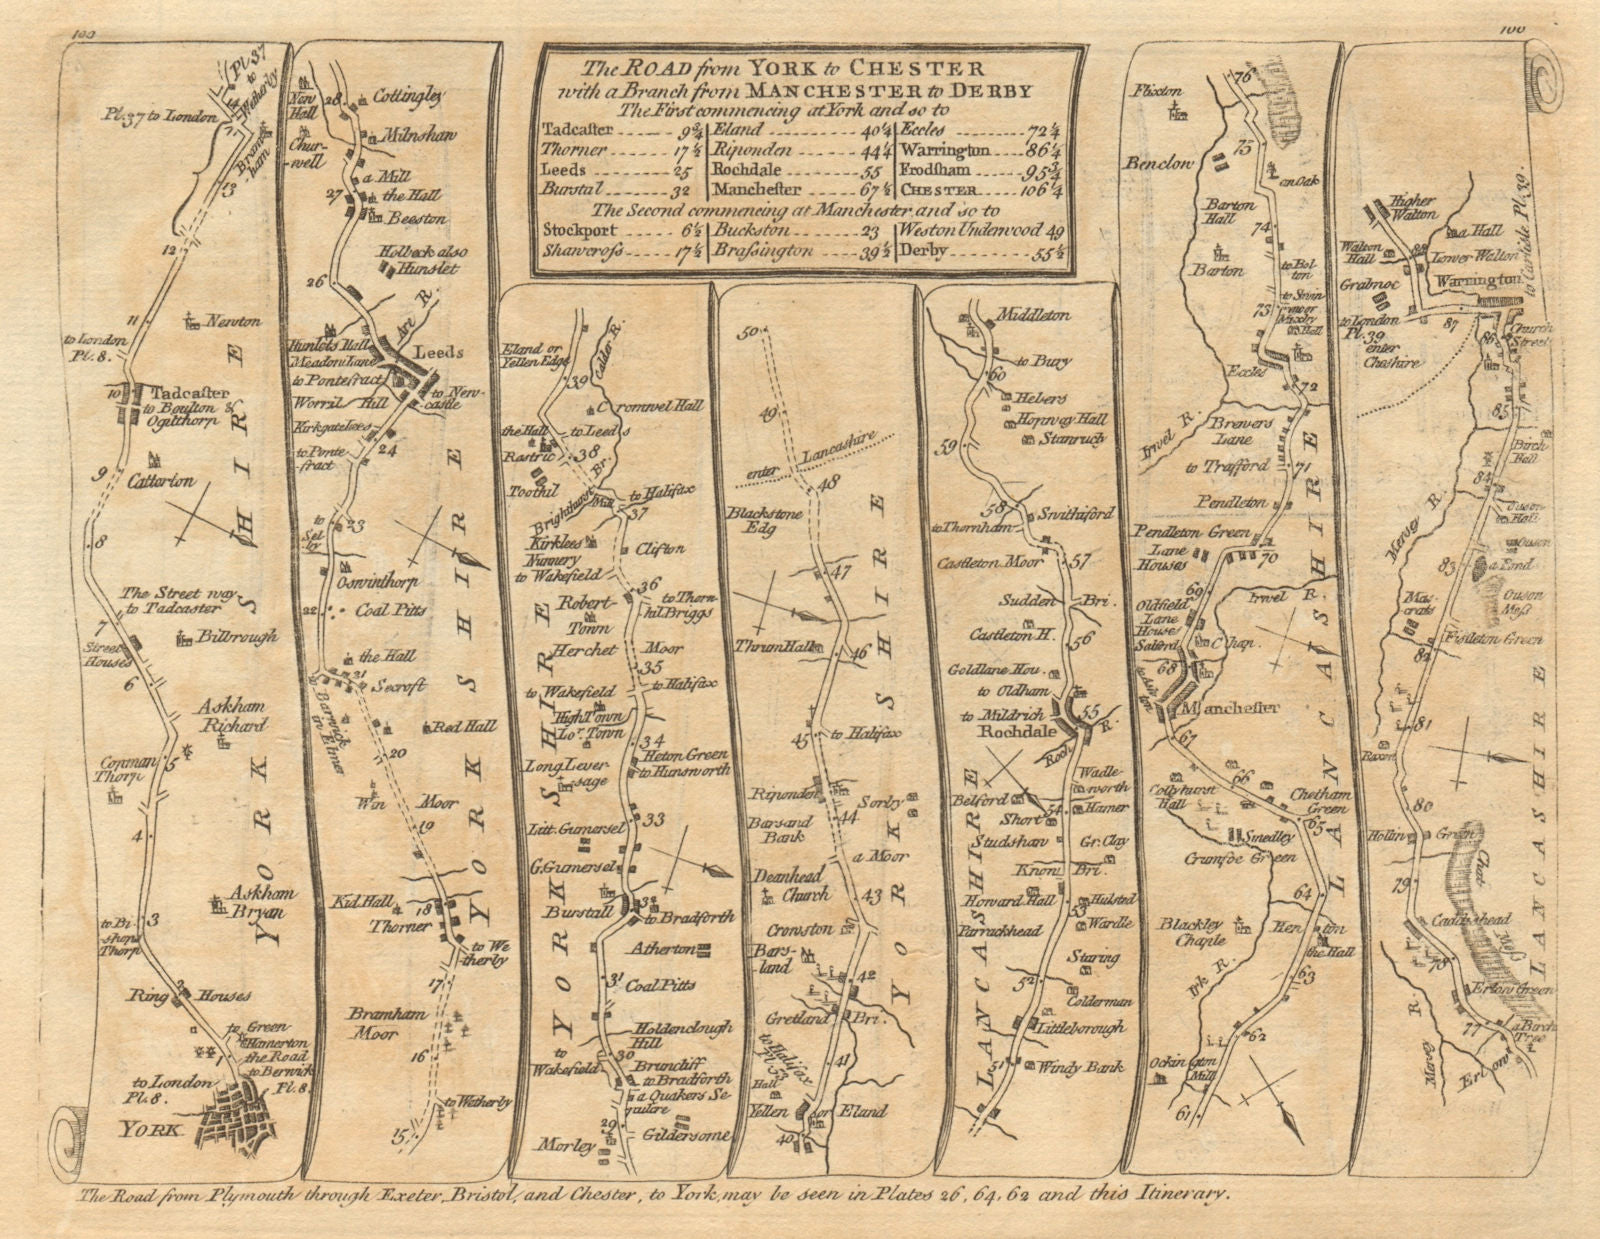 100
100
The ROAD from YORK to CHESTER
with a Branch from MANCHESTER to DERBY
The First commencing at York and so to
Tadcaster 9¾ Eland 40¼ Eccles 72¼
Thorner 17½ Riponden 44¼ Warrington 86¼
Leeds 25 Rochdale 55 Frodsham 95¾
Burstal 32 Manchester 67½ CHESTER 106¼
The Second commencing at Manchester and so to
Stockport 6½ Buckston 23 Weston Underwood 49
Shawcross 17½ Brassington 39½ Derby 55½
Pl. 37
to
Wetherby
Pl. 37 to London
Bramham
13
12
11
Newton
to London
Pl. 8.
10
Tadcaster
to Boulton &
Oglthorp
9
Catterton
8
The Street way
to Tadcaster
7
Bilbrough
Street
Houses
6
Askham
Richard
Copman
Thorp
5
4
Askham
Bryan
to Bishops
Thorp
3
Ring 2 Houses
to Green
Hamerton
the Road
to Berwick
Pl. 8.
1
to London
Pl. 8.
YORK
YORKSHIRE
New
Hall
28
Cottingley
Churwell
Milnshaw
a Mill
27
the Hall
Beeston
Holbeck also
Hunslet
26
Are R.
Hunslets Hall
Meadow Lane
Leeds
to Pontefract
Worril Hill
to Newcastle
Kirkgate Lees
24
to Pontefract
23
to
Selby
Oswinthorp
22
Coal Pitts
the Hall
21
Secroft
to Barwick
in Elmet
Red Hall
20
Win Moor
19
Kid Hall
18
Thorner
to Wetherby
17
Bramham
Moor
16
to Wetherby
15
YORKSHIRE
Eland or
Yellen Edge
Calder R.
39
Cromwel Hall
the Hall
to Leeds
Rastric
38
Toothil
Brighthouse Br.
Mill
to Halifax
37
Kirklees
Nunnery
Clifton
to Wakefield
36
Robert-
Town
to Thornhil Briggs
Herchet Moor
35
to Wakefield
to Halifax
High Town
Lor. Town
34
Heton Green
to Hunsworth
Long Leversage
33
Litt. Gumersel
G. Gumersel
32
Burstall
to Bradforth
Atherton
31
Coal Pitts
Holdenclough
Hill
to
Wakefield
30
Bruncliff
to Bradforth
a Quakers Sepulcre
29
Gildersome
Morley
YORKSHIRE
50
49
enter Lancashire
48
Blackstone
Edg
47
Thrum Hall
46
45
to Halifax
Riponden
Sorby
44
Barsand
Bank
a Moor
Deanhead
Church
43
Crowston
Barsland
42
Gretland Bri.
to Halifax
Pl. 53
41
Hall
Yellen or Eland
40
YORKSHIRE
Middleton
to Bury
60
Hebers
Hopway Hall
Stanruch
59
58
to Thornham
Smithiford
Castleton Moor
57
Sudden Bri.
Castleton H.
56
Goldlane Hou.
to Oldham
to Mildrich
55
Rochdale
Roch R.
Wadleworth
Belford
54
Hamer
Short
Studshaw
Gr. Clay
Know Bri.
Howard Hall
Hulsted
53
Wardle
Parrackhead
Staring
52
Colderman
Littleborough
51
Windy Bank
LANCASHIRE
76
Flixton
75
Benclow
an Oak
Barton
Hall
74
Barton
to Bolton
73
Eccles
72
Irwel R.
Brewers
Lane
to Trafford
71
Pendleton
Pendleton Green
Lane
Houses
70
69
Irwel R.
Oldfield
Lane
Houses
Salford
Chap.
68
Manchester
67
66
Collyhurst
Hall
Chetham
Green
65
Smedley
Crumsoe Green
64
Blackley
Chaple
Henton
the Hall
Irk R.
63
62
Ockington
Mill
61
LANCASHIRE
Higher
Walton
a Hall
Walton
Hall
88
Lower Walton
Grabnoc
Warrington
to Carlisle Pl. 39.
to London
Pl. 39
enter
Cheshire
87
86
Church
Street
85
Birch
Hall
84
Mersey R.
83
a Pond
Ouson
Moss
Fisleton Green
82
81
Rixon
80
Hollin Green
79
Chat
Moss
Caddishead
78
Erlom Green
77
a Birch
Tree
Mersey R.
LANCASHIRE
The Road from Plymouth through Exeter, Bristol, and Chester, to York, may be seen in Plates 26, 64, 62 and this Itinerary.